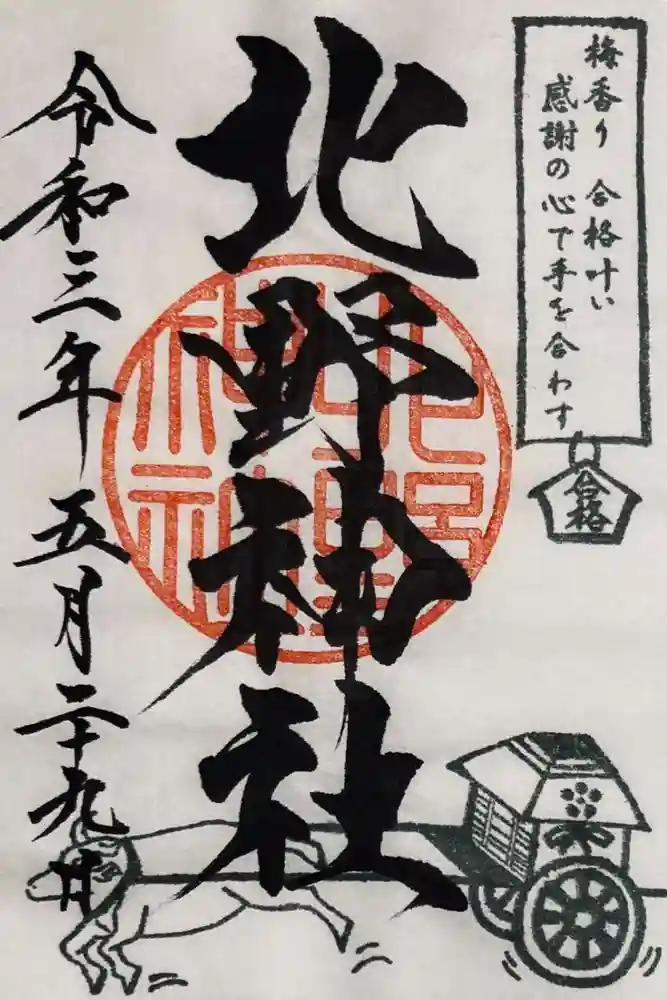 梅香り 合格叶い
感謝の心で手を合わす
合格
北野神社
令和三年五月二十九日